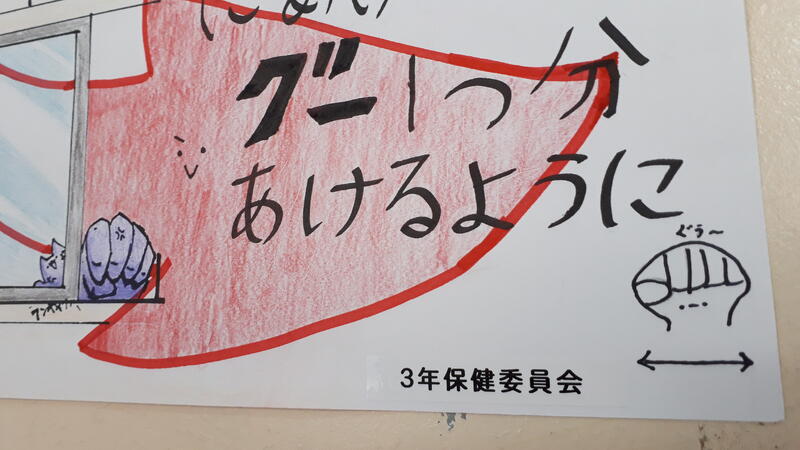 グー1つ分
あけるように
ぐぅ〜
3年保健委員会